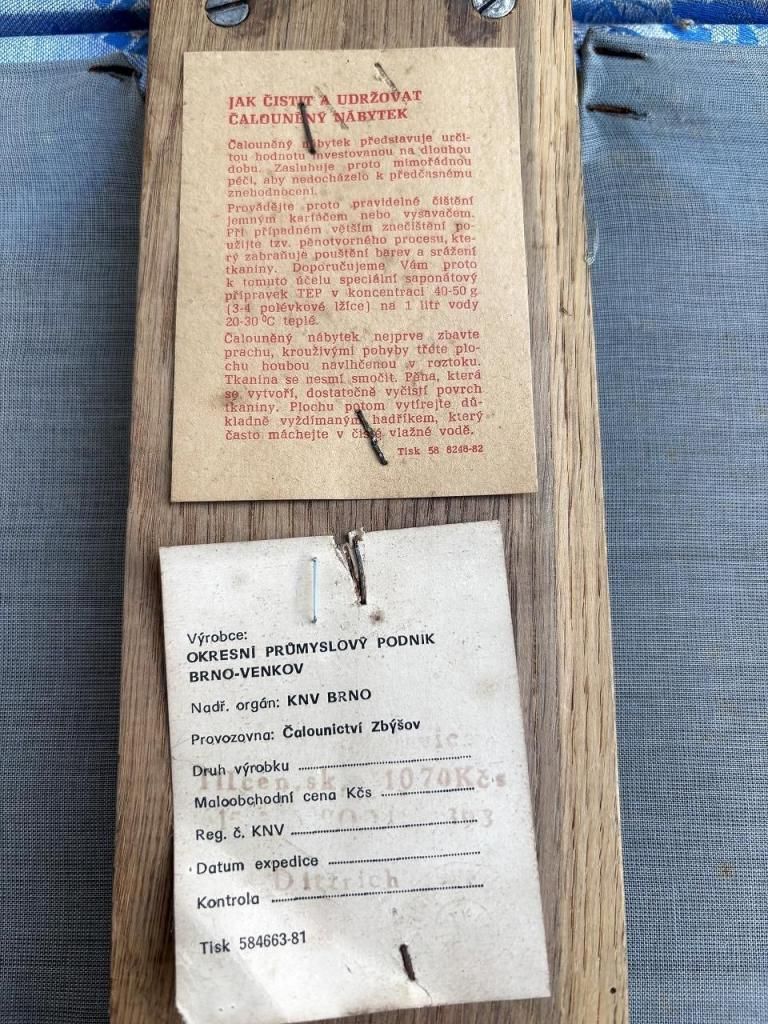 JAK ČISTIT A UDRŽOVAT
ČALOUNĚNÝ NÁBYTEK
Čalouněný nábytek představuje urči-
tou hodnotu investovanou na dlouhou
dobu. Zasluhuje proto mimořádnou
péči, aby nedocházelo k předčasnému
znehodnocení.
Provádějte proto pravidelné čištění
jemným kartáčem nebo vysavačem.
Při případném větším znečištění po-
užijte tzv. pěnotvorného procesu, kte-
rý zabraňuje pouštění barev a srážení
tkaniny. Doporučujeme Vám proto
k tomuto účelu speciální saponátový
přípravek TEP v koncentraci 40-50 g
(3-4 polévkové lžíce) na 1 litr vody
20-30 °C teplé.
Čalouněný nábytek nejprve zbavte
prachu, krouživými pohyby třete plo-
chu houbou navlhčenou v roztoku.
Tkanina se nesmí smočit. Pěna, která
se vytvoří, dostatečně vyčistí povrch
tkaniny. Plochu potom vytírejte dů-
kladně vyždímaným hadříkem, který
často máchejte v čisté vlažné vodě.
Tisk 58 6246-82
Výrobce:
OKRESNÍ PRŮMYSLOVÝ PODNIK
BRNO-VENKOV
Nadř. orgán: KNV BRNO
Provozovna: Čalounictví Zbýšov
Druh výrobku
1070Kčs
Maloobchodní cena Kčs
Reg. č. KNV
Datum expedice
Dittrich
Kontrola
Tisk 584663-81